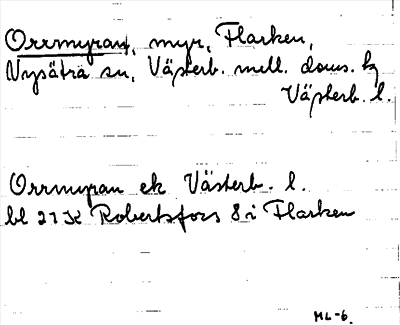 Orrmyran, myr, Flarken,
Nysätra sn, Västerb. mell. doms. hd
Västerb. l.
Orrmyran ek Västerb. l.
bl 21 K Robertsfors 8 i Flarken
ML-6.